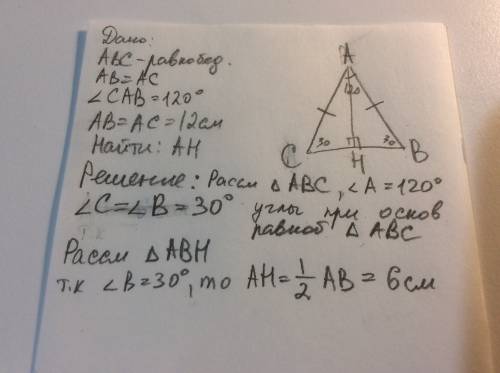 Дано:
ABC - равнобед.
AB=AC
∠CAB=120°
AB=AC=12см
Найти: AH
A
120
30
30
C
H
B
Решение: Рассм △ABC, ∠A=120°
∠C=∠B=30° углы при основ
равноб △ABC
Рассм △ABH
т.к ∠B=30°, то AH=1/2 AB=6см